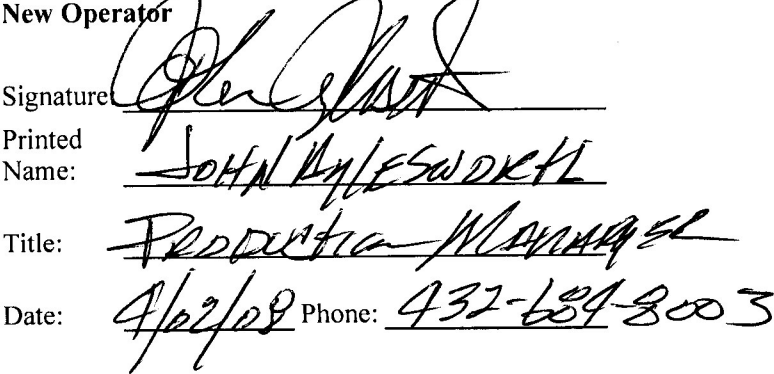 New Operator
Signature:
Printed
Name: JOHN AYLESWORTH
Title: PRODUCTION MANAGER
Date: 4/02/08 Phone: 432-684-8003